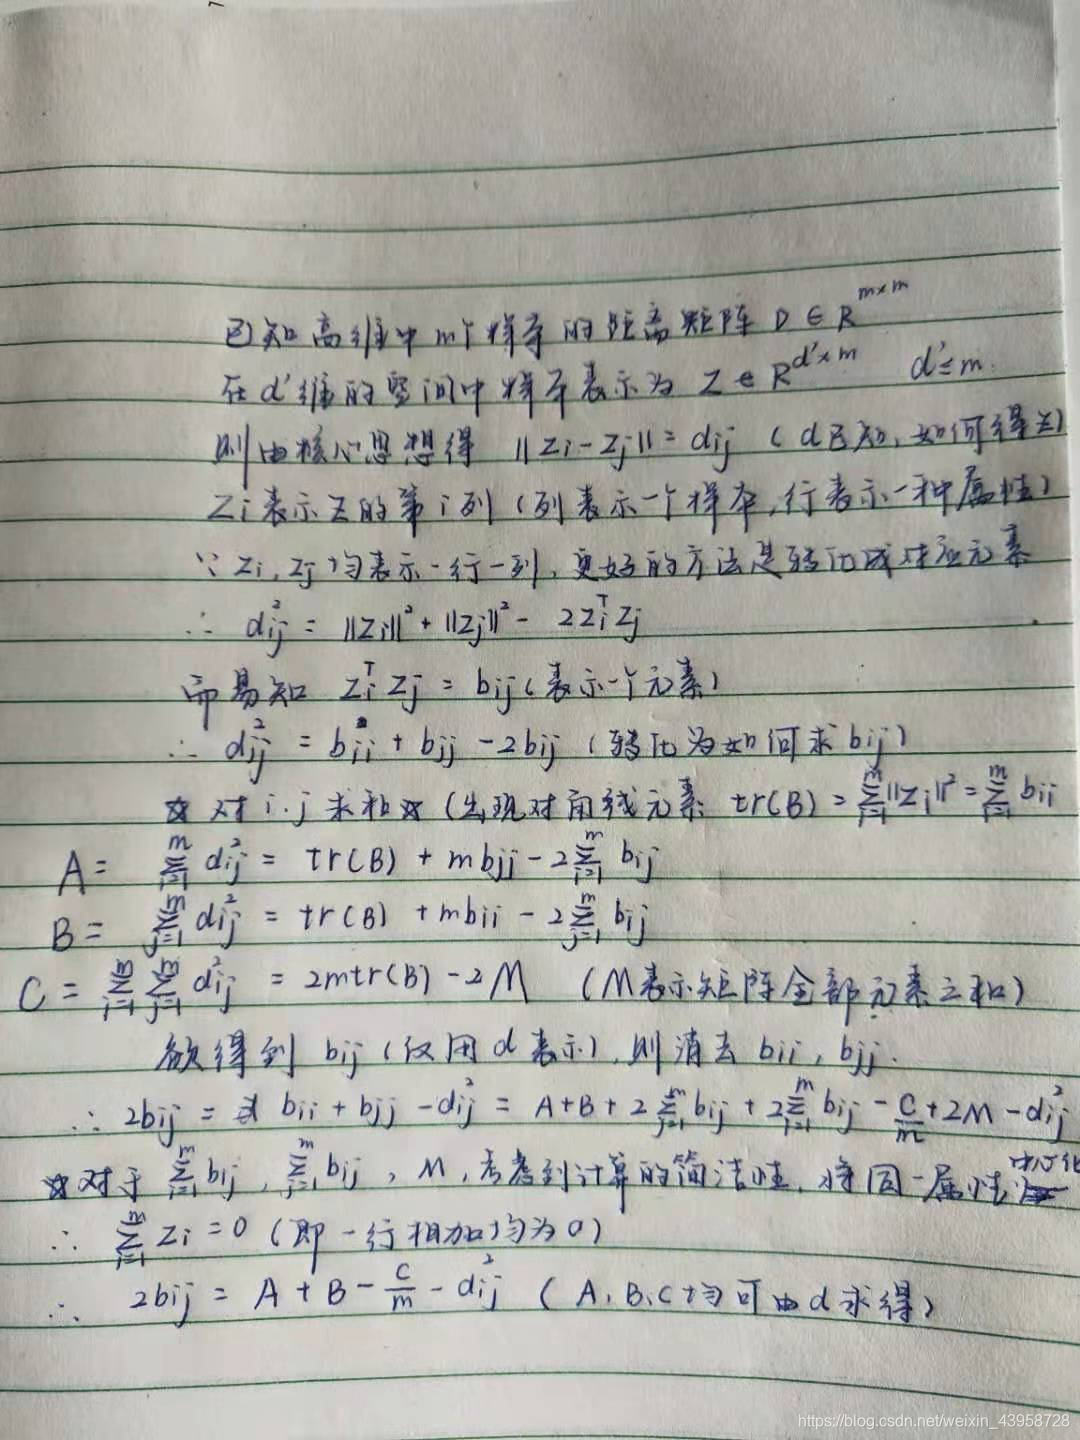 已知高维中m个样本的距离矩阵 D ∈ R^{m×m}
在d'维的空间中样本表示为 Z ∈ R^{d'×m} d'≤m.
则由核心思想得 ||Zi-Zj|| = dij (d已知,如何得Z)
Zi表示Z的第i列(列表示一个样本,行表示一种属性)
∵ Zi,Zj均表示一行一列,更好的方法是转化成对应元素
∴ dij² = ||Zi||² + ||Zj||² - 2Zi^T Zj
而易知 Zi^T Zj = bij(表示一个元素)
∴ dij² = bii + bjj - 2bij (转化为如何求bij)
☆对i.j求和☆ (出现对角线元素 tr(B) = Σ_{i=1}^{m}||Zi||² = Σ_{i=1}^{m} bii
A = Σ_{i=1}^{m} dij² = tr(B) + mbjj - 2Σ_{i=1}^{m} bij
B = Σ_{j=1}^{m} dij² = tr(B) + mbii - 2Σ_{j=1}^{m} bij
C = Σ_{i=1}^{m} Σ_{j=1}^{m} dij² = 2mtr(B) - 2M (M表示矩阵全部元素之和)
欲得到 bij (仅用d表示),则消去 bii, bjj.
∴ 2bij = bii + bjj - dij² = A+B+2Σ_{j=1}^{m} bij + 2Σ_{i=1}^{m} bij - C/m + 2M - dij²
☆对于 Σ_{i=1}^{m} bij, Σ_{j=1}^{m} bij, M,考虑到计算的简洁性,将同一属性中心化
∴ Σ_{i=1}^{m} Zi = 0 (即一行相加均为0)
∴ 2bij = A + B - C/m - dij² (A、B、C均可由d求得)
https://blog.csdn.net/weixin_43958728